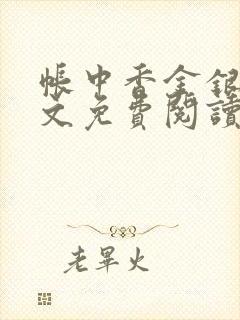 帳中香金銀
文免費閱讀
老畢火